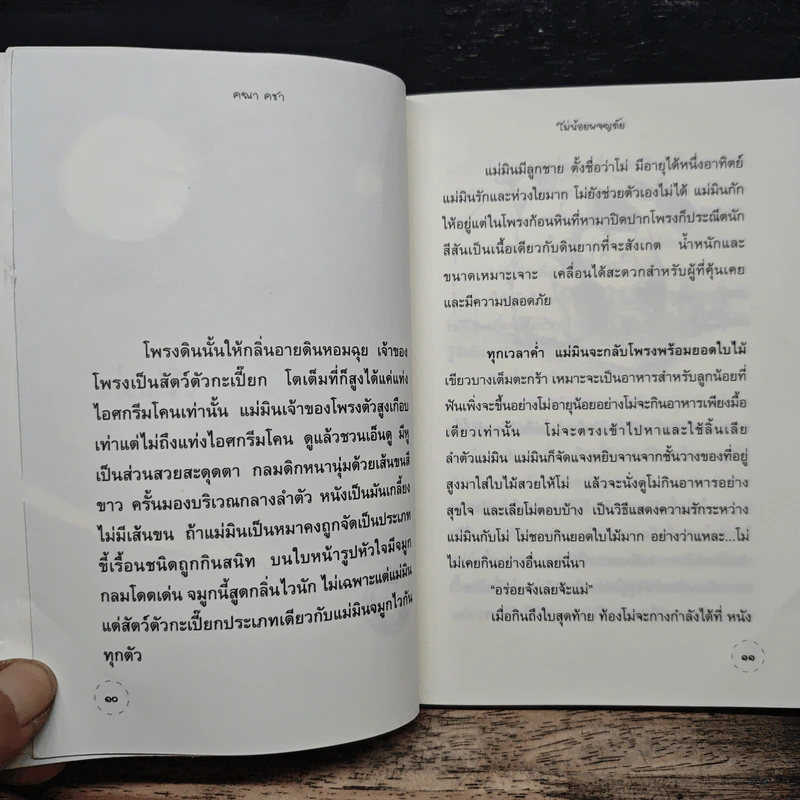 คณา คชา
โพรงดินนั้นให้กลิ่นอายดินหอมฉุย เจ้าของ
โพรงเป็นสัตว์ตัวกะเปี๊ยก โตเต็มที่ก็สูงได้แค่แท่ง
ไอศกรีมโคนเท่านั้น แม่มินเจ้าของโพรงตัวสูงเกือบ
เท่าแต่ไม่ถึงแท่งไอศกรีมโคน ดูแล้วชวนเอ็นดู มีหู
เป็นส่วนสวยสะดุดตา กลมดิกหนานุ่มด้วยเส้นขนสี
ขาว ครั้นมองบริเวณกลางลำตัว หนังเป็นมันเกลี้ยง
ไม่มีเส้นขน ถ้าแม่มินเป็นหมาคงถูกจัดเป็นประเภท
ขี้เรื้อนชนิดถูกกินสนิท บนใบหน้ารูปหัวใจมีจมูก
กลมโดดเด่น จมูกนี้สูดกลิ่นไวนัก ไม่เฉพาะแต่แม่มิน
แต่สัตว์ตัวกะเปี๊ยกประเภทเดียวกับแม่มินจมูกไวกัน
ทุกตัว
๑๐
โม่น้อยผจญภัย
แม่มินมีลูกชาย ตั้งชื่อว่าโม่ มีอายุได้หนึ่งอาทิตย์
แม่มินรักและห่วงใยมาก โม่ยังช่วยตัวเองไม่ได้ แม่มินกัก
ให้อยู่แต่ในโพรงก้อนหินที่หามาปิดปากโพรงก็ประณีตนัก
สีสันเป็นเนื้อเดียวกับดินยากที่จะสังเกต น้ำหนักและ
ขนาดเหมาะเจาะ เคลื่อนได้สะดวกสำหรับผู้ที่คุ้นเคย
และมีความปลอดภัย
ทุกเวลาค่ำ แม่มินจะกลับโพรงพร้อมยอดใบไม้
เขียวบางเต็มตะกร้า เหมาะจะเป็นอาหารสำหรับลูกน้อยที่
ฟันเพิ่งจะขึ้นอย่างโม่อายุน้อยอย่างโม่จะกินอาหารเพียงมื้อ
เดียวเท่านั้น โม่จะตรงเข้าไปหาและใช้ลิ้นเลีย
ลำตัวแม่มิน แม่มินก็จัดแจงหยิบจานจากชั้นวางของที่อยู่
สูงมาใส่ใบไม้สวยให้โม่ แล้วจะนั่งดูโม่กินอาหารอย่าง
สุขใจ และเลียโม่ตอบบ้าง เป็นวิธีแสดงความรักระหว่าง
แม่มินกับโม่ โม่ชอบกินยอดใบไม้มาก อย่างว่าแหละ...โม่
ไม่เคยกินอย่างอื่นเลยนี่นา
“อร่อยจังเลยจ้ะแม่”
เมื่อกินถึงใบสุดท้าย ท้องโม่จะกางกำลังได้ที่ หนัง
๑๑